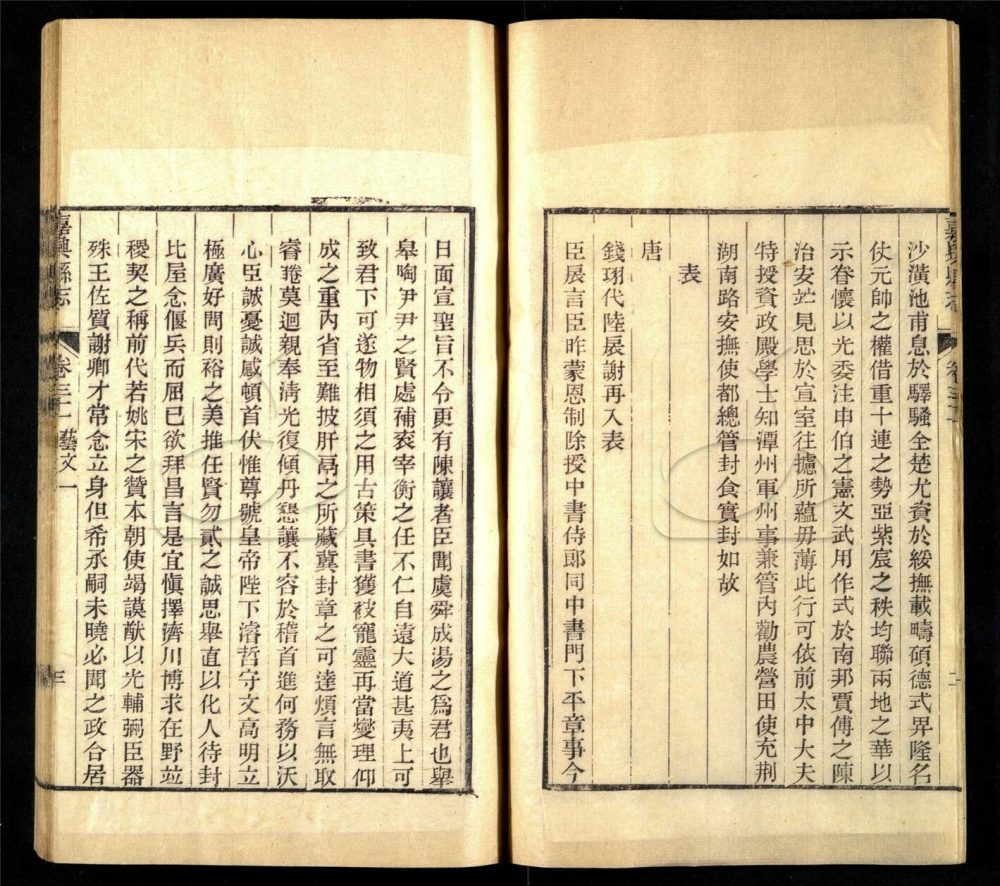 沙潢池甫息於驛騷全楚尤資於綏撫載疇碩德式畀隆名
伏元帥之權借重十連之勢亞紫宸之秩均聯兩地之華以
示眷懷以光委注申伯之憲文武用作式於南邦賈傅之陳
治安竚見思於宣室往攄所蘊毋薄此行可依前太中大夫
特授資政殿學士知潭州軍州事兼管內勸農營田使充荆
湖南路安撫使都總管封食實封如故
表
唐
錢珝代陸扆謝再入表
臣扆言臣昨蒙恩制除授中書侍郞同中書門下平章事今
嘉興縣志
卷三十一 藝文一
三
日面宣聖旨不令更有陳讓者臣聞虞舜成湯之爲君也舉
皋陶伊尹之賢處補衮宰衡之任不仁自遠大道甚夷上可
致君下可遂物相須之用古策具書獲被寵靈再當燮理仰
成之重內省至難披肝鬲之所藏冀封章之可達煩言無取
睿睠莫迴親奉淸光復傾丹懇讓不容於稽首進何務以沃
心臣誠憂誠感頓首伏惟尊號皇帝陛下濬哲守文高明立
極廣好問則裕之美推任賢勿貳之誠思舉直以化人待封
比屋念偃兵而屈已欲拜昌言是宜愼擇濟川博求在野竝
稷契之稱前代若姚宋之贊本朝使竭謨猷以光輔弼臣器
殊王佐質謝卿才常念立身但希承嗣未曉必聞之政合居